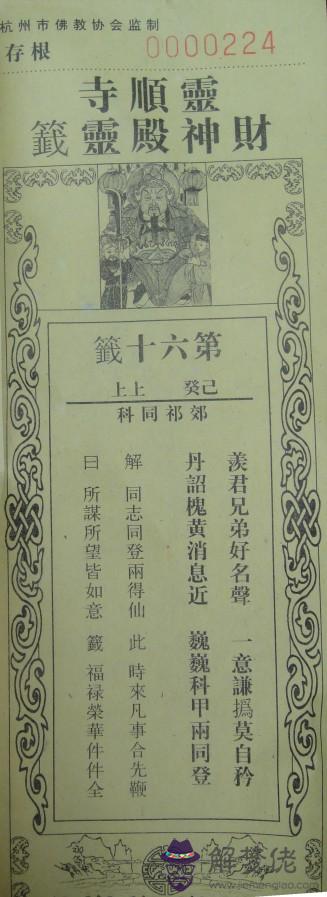 杭州市佛教协会监制
存根 0000224
靈順寺
財神殿靈籤
第六十籤
己癸 上上
郊祁同科
羨君兄弟好名聲 一意謙撝莫自矜
丹詔槐黄消息近 巍巍科甲兩同登
解 同志同登兩得仙 此 時來凡事合先鞭
曰 所謀所望皆如意 籤 福禄榮華件件全
解梦佬
www.jiemenglao.com